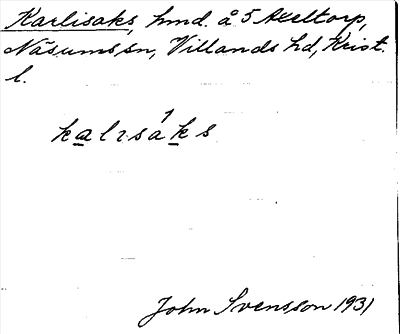 Karlisaks, hmd. å 5 Axeltorp,
Näsums sn, Villands hd, Krist.
l.
kalısa̍ks
John Svensson 1931